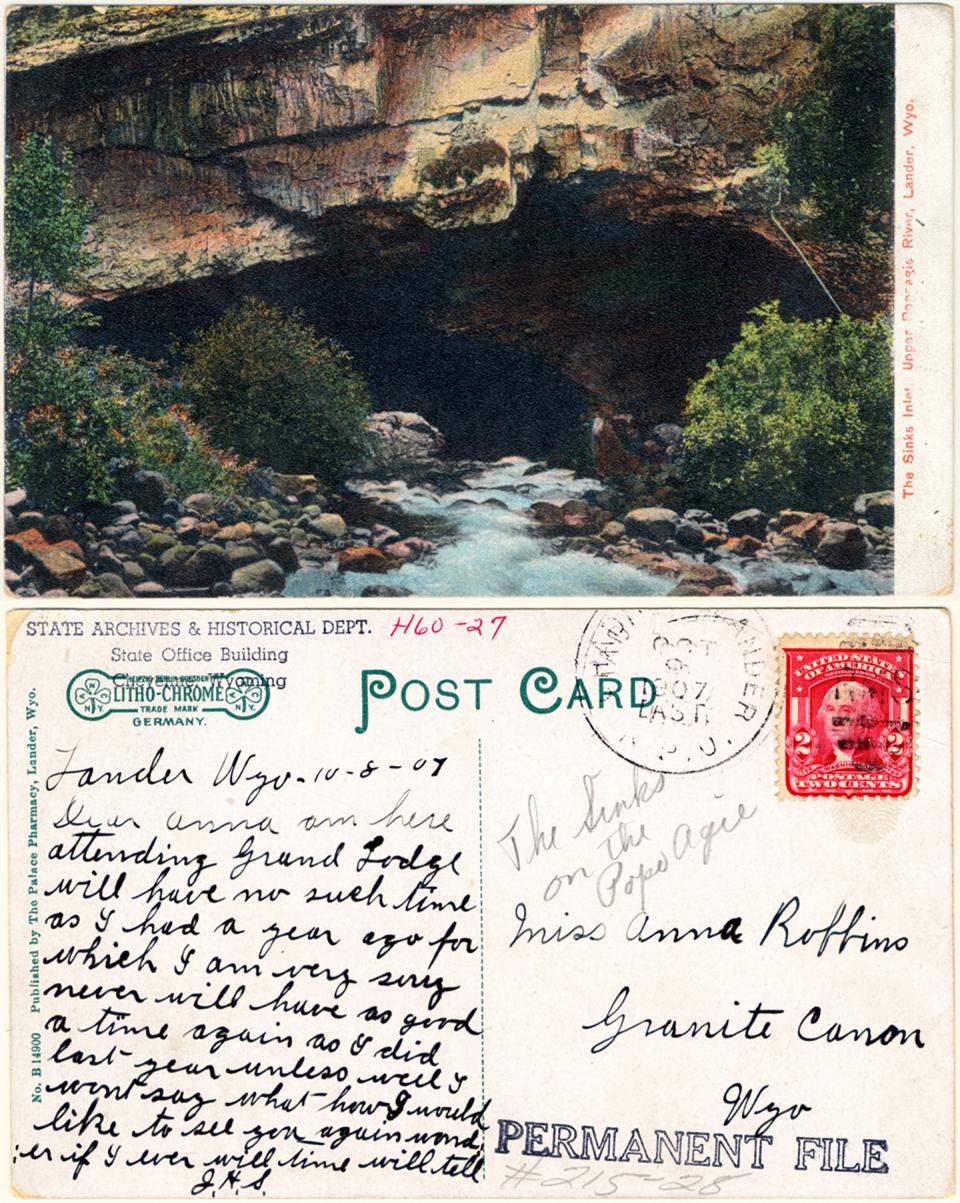 The Sinks Inlet, Upper Popoagie River, Lander, Wyo.
STATE ARCHIVES & HISTORICAL DEPT. H60-27
State Office Building
Cheyenne, Wyoming
LEIPZIG BERLIN DRESDEN
LITHO-CHROME
N.Y. N.Y.
TRADE MARK
GERMANY.
POST CARD
LANDER
OCT
9
1907
EAST
R.P.O.
UNITED STATES
OF AMERICA
2 2
WASHINGTON
POSTAGE
TWO CENTS
No. B 14900 Published by The Palace Pharmacy, Lander, Wyo.
Lander Wyo-10-8-07
Dear anna am here
attending Grand Lodge
will have no such time
as I had a year ago for
which I am very sorry
never will have as good
a time again as I did
last year unless well I
wont say what how I would
like to see you again wond,
:er if I ever will time will tell
J.H.S.
The Sinks
on the
Popo Agie
Miss Anna Robbins
Granite Canon
Wyo
PERMANENT FILE
#215-28